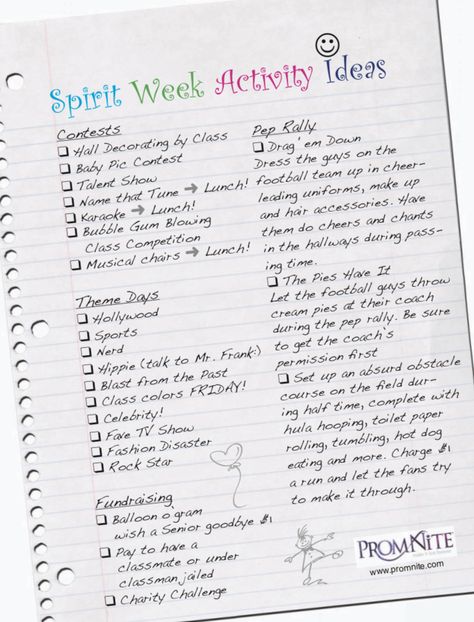 Spirit Week Activity Ideas
Contests
Hall Decorating by Class
Baby Pic Contest
Talent Show
Name that Tune → Lunch!
Karaoke → Lunch!
Bubble Gum Blowing
Class Competition
Musical chairs → Lunch!
Theme Days
Hollywood
Sports
Nerd
Hippie (talk to Mr. Frank:)
Blast from the Past
Class colors FRIDAY!
Celebrity!
Fave TV Show
Fashion Disaster
Rock Star
Fundraising
Balloon o'gram
wish a Senior goodbye $1
Pay to have a
classmate or under
classman jailed
Charity Challenge
Pep Rally
Drag 'em Down
Dress the guys on the
football team up in cheer-
leading uniforms, make up
and hair accessories. Have
them do cheers and chants
in the hallways during pass-
ing time.
The Pies Have It
Let the football guys throw
cream pies at their coach
during the pep rally. Be sure
to get the coach's
permission first
Set up an absurd obstacle
course on the field dur-
ing half time, complete with
hula hooping, toilet paper
rolling, tumbling, hot dog
eating and more. Charge $1
a run and let the fans try
to make it through.
PROMNITE
www.promnite.com